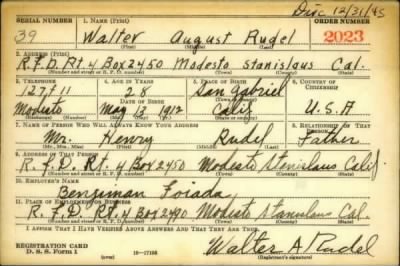 Disc 12/31/45
SERIAL NUMBER 1. NAME (Print) ORDER NUMBER
39 Walter August Rudel 2023
(First) (Middle) (Last)
2. ADDRESS (Print)
R.F.D. Rt. 4 Box 2450 Modesto Stanislaus Cal.
(Number and street or R. F. D. number) (Town) (County) (State)
3. TELEPHONE 4. AGE IN YEARS 5. PLACE OF BIRTH 6. COUNTRY OF CITIZENSHIP
127F11 28 San Gabriel
DATE OF BIRTH (Town or county)
Modesto May 12 1912 Calif U.S.A
(Exchange) (Mo.) (Day) (Yr.) (State or country)
7. NAME OF PERSON WHO WILL ALWAYS KNOW YOUR ADDRESS 8. RELATIONSHIP OF THAT PERSON
Mr. Henry Rudel Father
(Mr., Mrs., Miss) (First) (Middle) (Last)
9. ADDRESS OF THAT PERSON
R.F.D. Rt. 4 Box 2450 Modesto Stanislaus Calif.
(Number and street or R. F. D. number) (Town) (County) (State)
10. EMPLOYER'S NAME
Benjiman
11. PLACE OF EMPLOYMENT OR BUSINESS
R.F.D. Rt. 4 Box 2490 Modesto Stanislaus Cal.
(Number and street or R. F. D. number) (Town) (County) (State)
I AFFIRM THAT I HAVE VERIFIED ABOVE ANSWERS AND THAT THEY ARE TRUE.
REGISTRATION CARD
D. S. S. Form 1 (over) 16-17105 Walter A Rudel
(Registrant's signature)